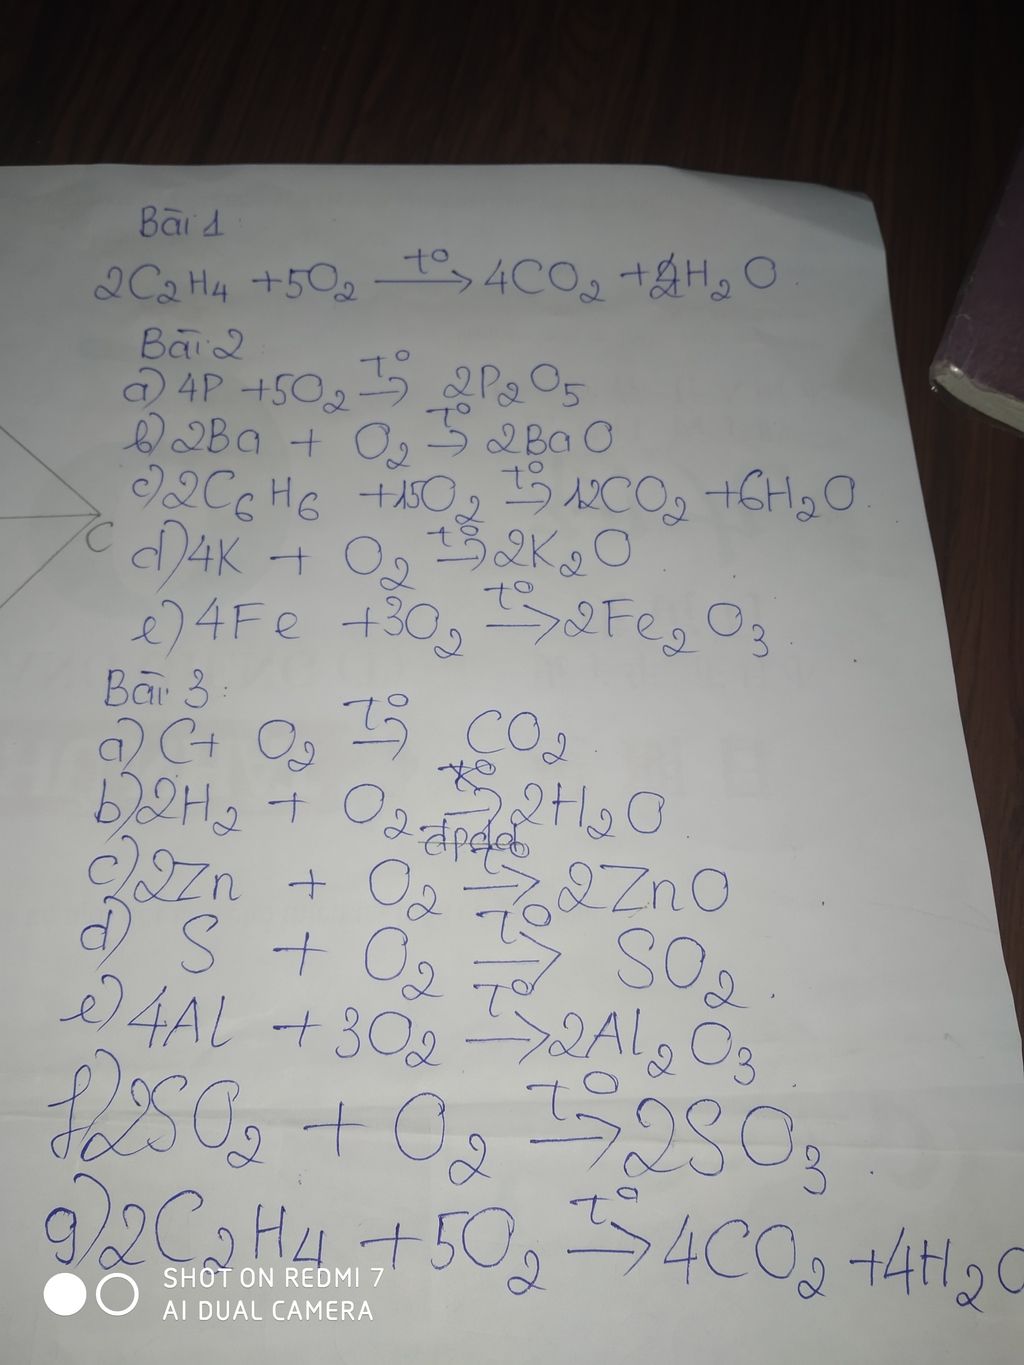 Bài 1
2C₂H₄ + 5O₂ →(t°) 4CO₂ + H₂O
Bài 2
a) 4P + 5O₂ →(t°) 2P₂O₅
b) 2Ba + O₂ →(t°) 2BaO
c) 2C₆H₆ + 15O₂ →(t°) 12CO₂ + 6H₂O
d) 4K + O₂ →(t°) 2K₂O
e) 4Fe + 3O₂ →(t°) 2Fe₂O₃
C
Bài 3:
a) C + O₂ →(t°) CO₂
b) 2H₂ + O₂ → 2H₂O
c) 2Zn + O₂ →(t°) 2ZnO
d) S + O₂ →(t°) SO₂
e) 4Al + 3O₂ →(t°) 2Al₂O₃
f) 2SO₂ + O₂ →(t°) 2SO₃
g) 2C₂H₄ + 5O₂ →(t°) 4CO₂ + 4H₂O
SHOT ON REDMI 7
AI DUAL CAMERA